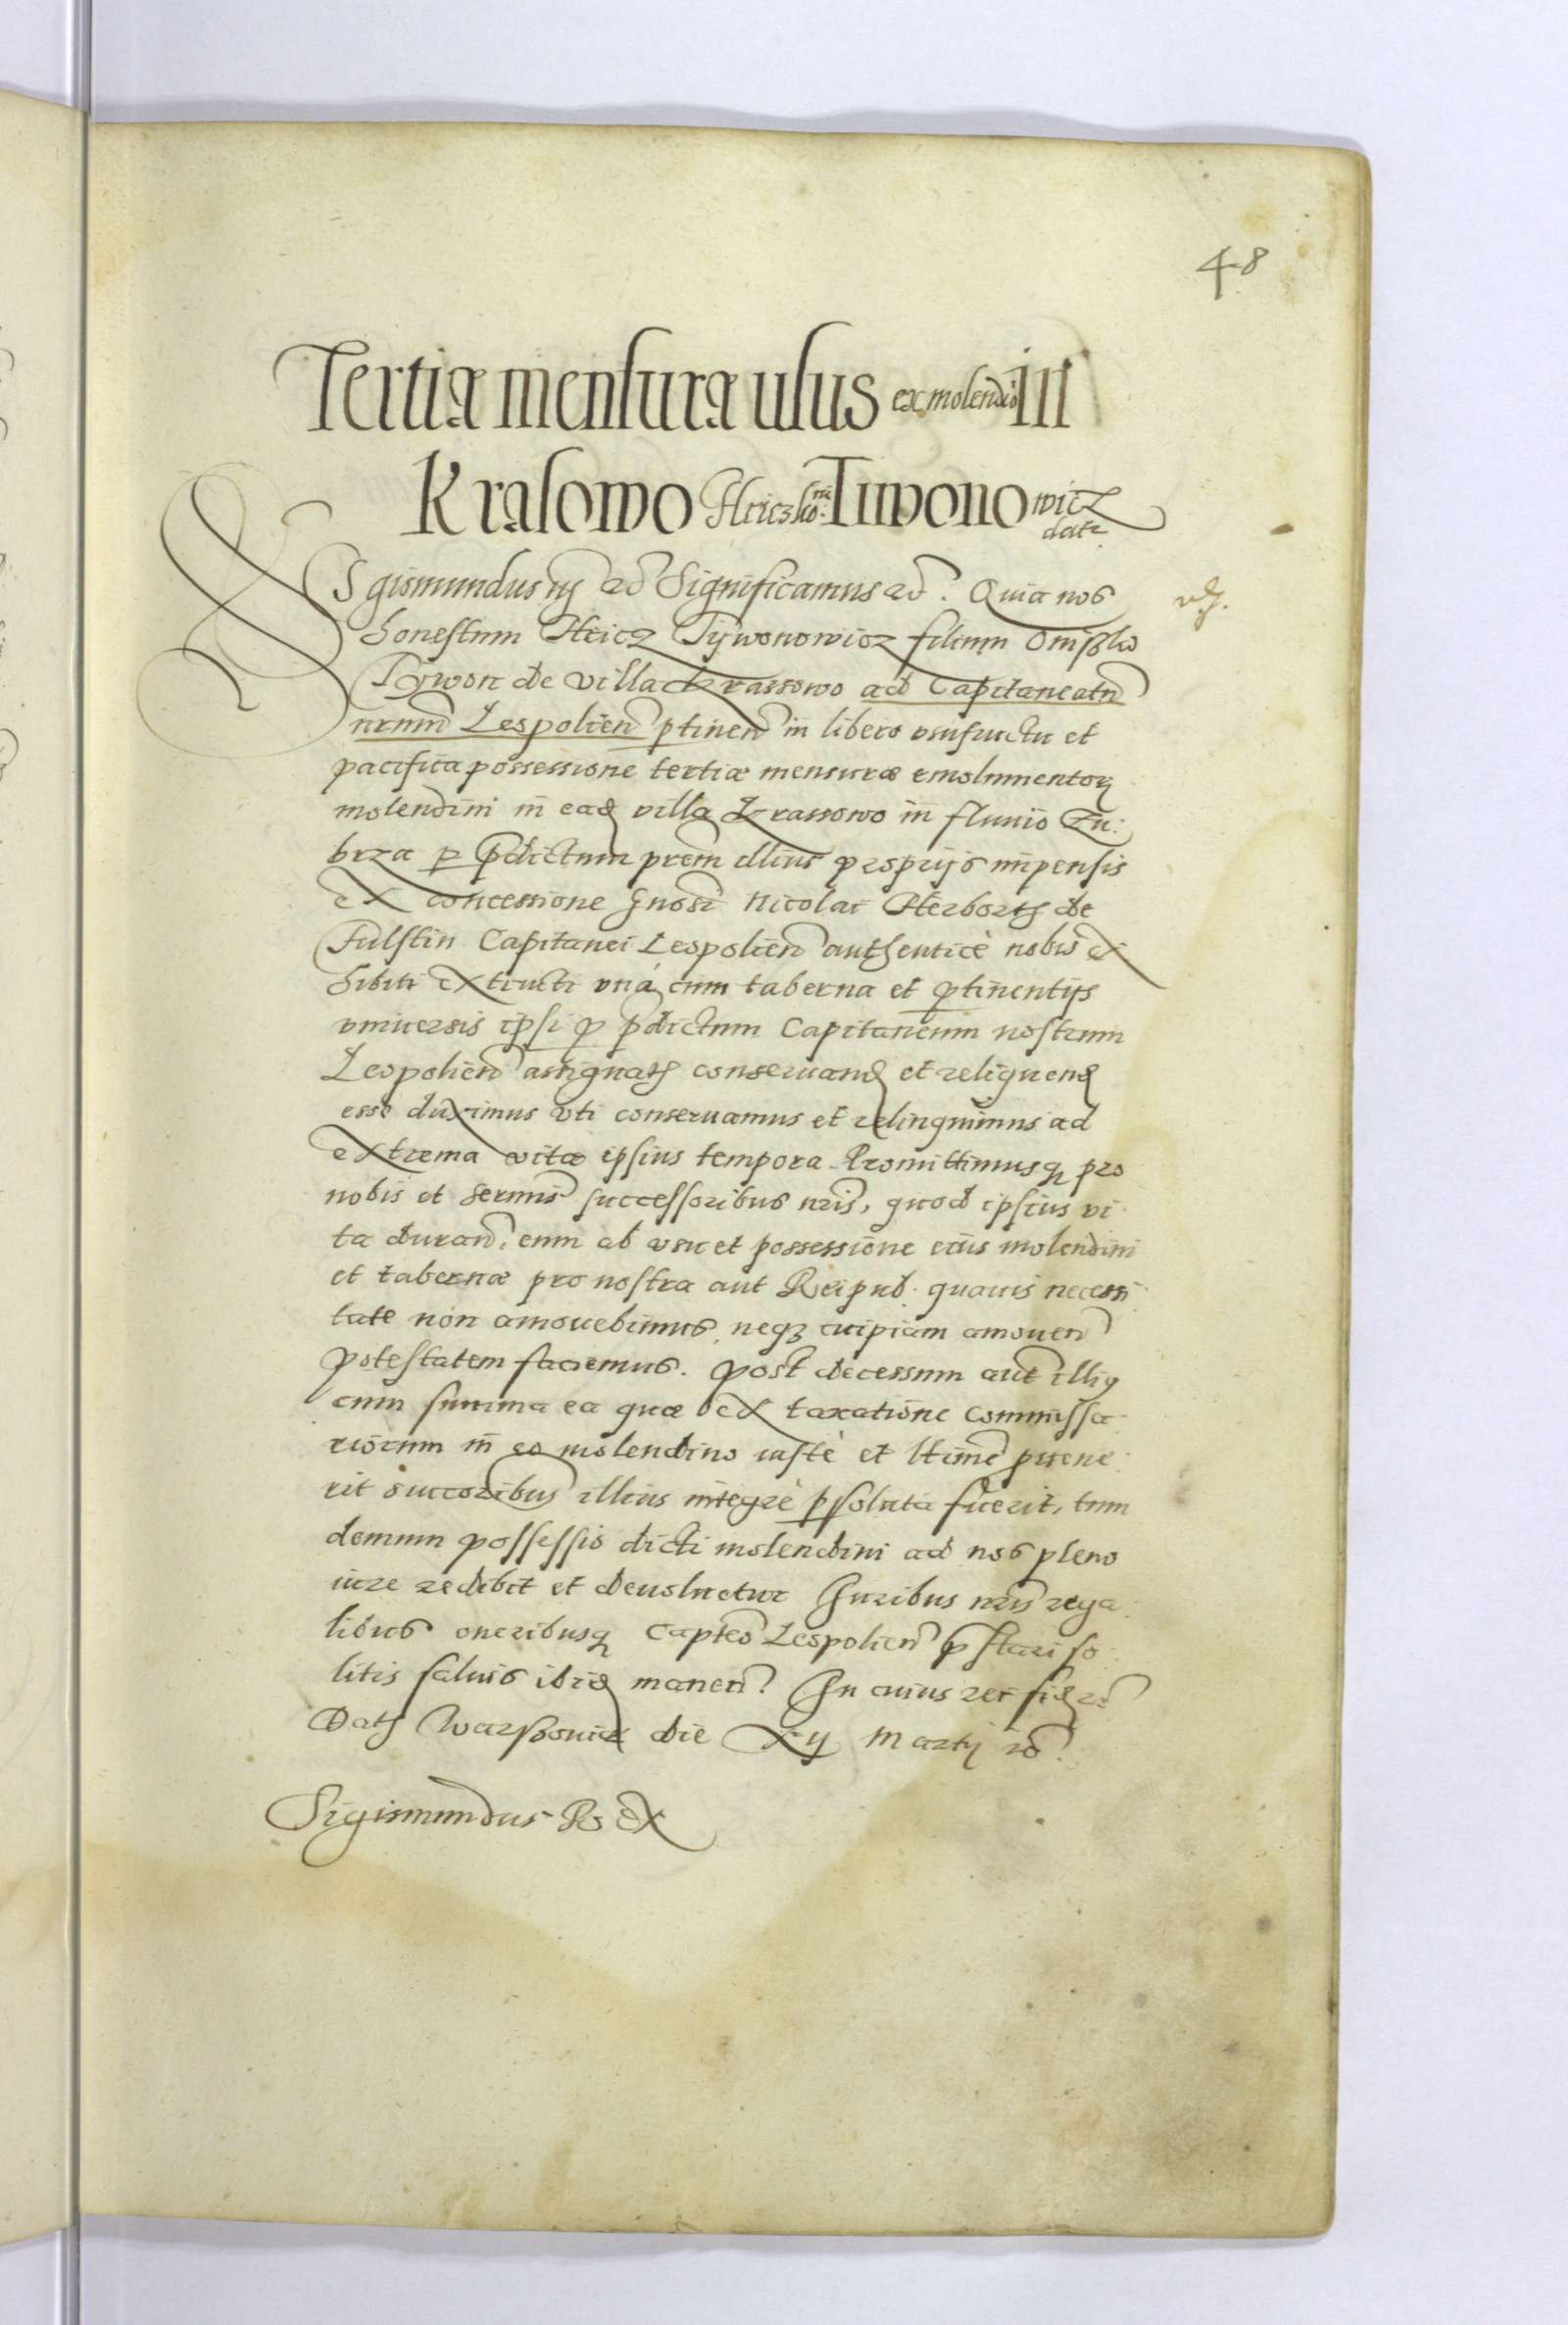 48
Tertiæ mensuræ usus ex molendio in
Krasowo Hriczkoni Tiwonowicz
datr
Sigismundus iij etc Significamus etc. Quia nos
honestum Hricz Tywonowicz filium Onisko
Tywon de villa Krassowo ad Capitaneatũ
nrum Leopolien ptinen in libero usufructu et
pacifica possessione tertiæ mensuræ emolumentorꝝ
molendini in eadẽ villa Krassowo in fluuio Zu:
brza p prædictum prem illius proprijs impensis
ex concessione Gnosi Nicolai Herborth de
Fulstin Capitanei Leopolien authenticè nobis ex
hibiti extructi unà cum taberna et ptinentijs
vniuersis ipsi p pdictum Capitaneum nostrum
Leopolien assignath conseruand et reliquend
esse duximus vti conseruamus et relinquimus ad
extrema vitæ ipsius tempora. Promittimusq pro
nobis et sermis successoribus nris, quod ipsius vi
ta duran, eum ab vsu et possessione eius molendini
et tabernæ pro nostra aut Reipub. quauis necessi
tate non amouebimus, neq cuipiam amouen
potestatem faciemus. Post decessum aut illiq
cum summa ea quæ ex taxatione commissa
riorum in eo molendino iustè et ltime puene
rit succoribus illius integrè psoluta fuerit, tum
demum possessio dicti molendini ad nos pleno
iure redibit et deuoluetur Juribus nris rega
libus oneribusq Capteo Leopolien pstari so
litis saluis ibidẽ manen. In cuius rei fidẽ etc
Dath Warssouiæ die xij Martij etc.
Sigismundus Rex